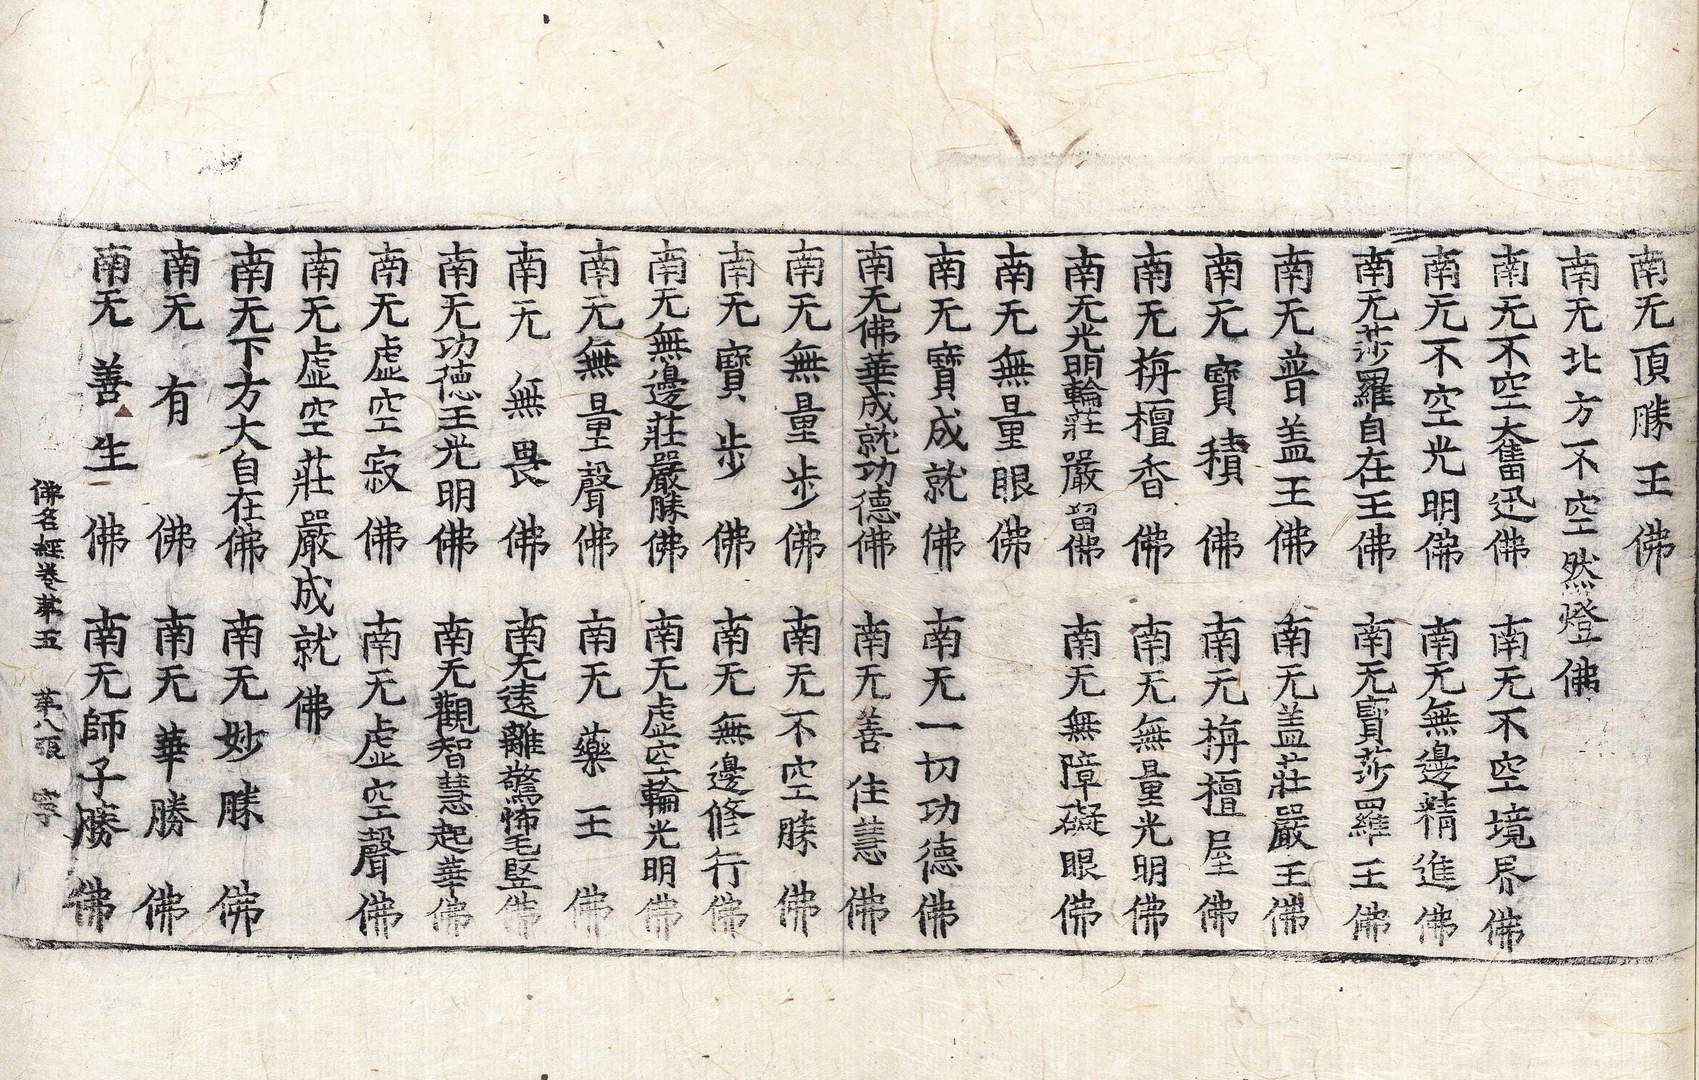 南无頂勝王佛
南无北方不空然燈佛
南无不空大奮迅佛　南无不空境界佛
南无不空光明佛　南无無邊精進佛
南无莎羅自在王佛　南无寶莎羅王佛
南无普盖王佛　南无盖莊嚴王佛
南无寶積佛　南无栴檀屋佛
南无栴檀香佛　南无無量光明佛
南无光明輪莊嚴留佛　南无無障礙眼佛
南无無量眼佛
南无寶成就佛　南无一切功德佛
南无佛華成就功德佛　南无善住慧佛
南无無量步佛　南无不空勝佛
南无寶步佛　南无無邊修行佛
南无無邊莊嚴勝佛　南无虛空輪光明佛
南无無量聲佛　南无藥王佛
南无無畏佛　南无遠離驚怖毛竪佛
南无功德王光明佛　南无觀智慧起華佛
南无虛空寂佛　南无虛空聲佛
南无虛空莊嚴成就佛
南无下方大自在佛　南无妙勝佛
南无有佛　南无華勝佛
南无善生佛　南无師子勝佛
佛名經卷第五　第八張